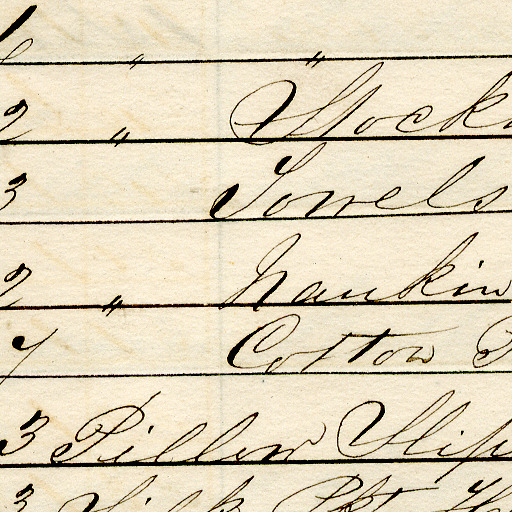 " "
2 " Stock
3 Towels
2 " Nankin
7 Cotton
3 Pillow Slip
3 Silk Pkt H